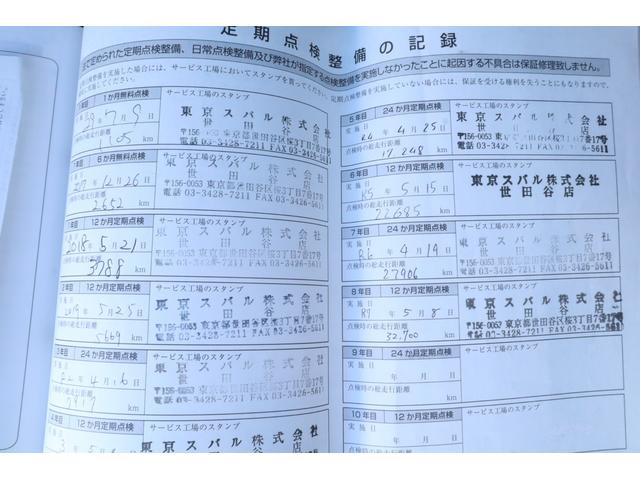 定期点検整備の記録
で定められた定期点検整備、日常点検整備及び弊社が指定する点検整備を実施しなかったことに起因する不具合は保証修理致しません。
を実施した場合には、サービス工場においてスタンプを貰ってください。定期点検整備を実施していない場合には、保証を受ける権利を失うこともありますので、
1か月無料点検
サービス工場のスタンプ
7月9日
東京スバル株式会社
世田谷店
〒156-0053 東京都世田谷区桜3丁目7番17号
電話 03-3428-7211 FAX 03-3428-5611
km
6か月無料点検
サービス工場のスタンプ
2017年12月26日
東京スバル株式会社
世田谷店
〒156-0053 東京都世田谷区桜3丁目7番17号
電話 03-3428-7211 FAX 03-3428-5611
2652 km
1年目 12か月定期点検
サービス工場のスタンプ
2018年5月21日
東京スバル株式会社
世田谷店
〒156-0053 東京都世田谷区桜3丁目7番17号
電話 03-3428-7211 FAX 03-3428-5611
3788 km
2年目 12か月定期点検
サービス工場のスタンプ
2019年5月25日
東京スバル株式会社
世田谷店
〒156-0053 東京都世田谷区桜3丁目7番17号
電話 03-3428-7211 FAX 03-3428-5611
km
3年目 24か月定期点検
サービス工場のスタンプ
年4月16日
東京スバル株式会社
世田谷店
〒156-0053 東京都世田谷区桜3丁目7番17号
電話 03-3428-7211 FAX 03-3428-5611
km
12か月定期点検
サービス工場のスタンプ
東京スバル株式会社
5年目 24か月定期点検
サービス工場のスタンプ
実施日
年4月25日
東京スバル
世田谷
〒156-0053 東京都世田谷区桜3丁目7番17号
電話 03-3428-7211 FAX 03-3428-5611
点検時の総走行距離
17248 km
6年目 12か月定期点検
サービス工場のスタンプ
実施日
R5年5月15日
東京スバル株式会社
世田谷店
点検時の総走行距離
22685 km
7年目 24か月定期点検
サービス工場のスタンプ
実施日
R6年4月19日
東京スバル株式会社
世田谷店
〒156-0053 東京都世田谷区桜3丁目7番17号
電話 03-3428-7211 FAX 03-3428-5611
点検時の総走行距離
27906 km
8年目 12か月定期点検
サービス工場のスタンプ
実施日
R7年5月8日
東京スバル株式会社
世田谷店
〒156-0053 東京都世田谷区桜3丁目7番17号
電話 03-3428-7211 FAX 03-3428-5611
点検時の総走行距離
32,700 km
9年目 24か月定期点検
サービス工場のスタンプ
実施日
年 月 日
点検時の総走行距離
km
10年目 12か月定期点検
サービス工場のスタンプ
実施日
年 月 日
点検時の総走行距離
km